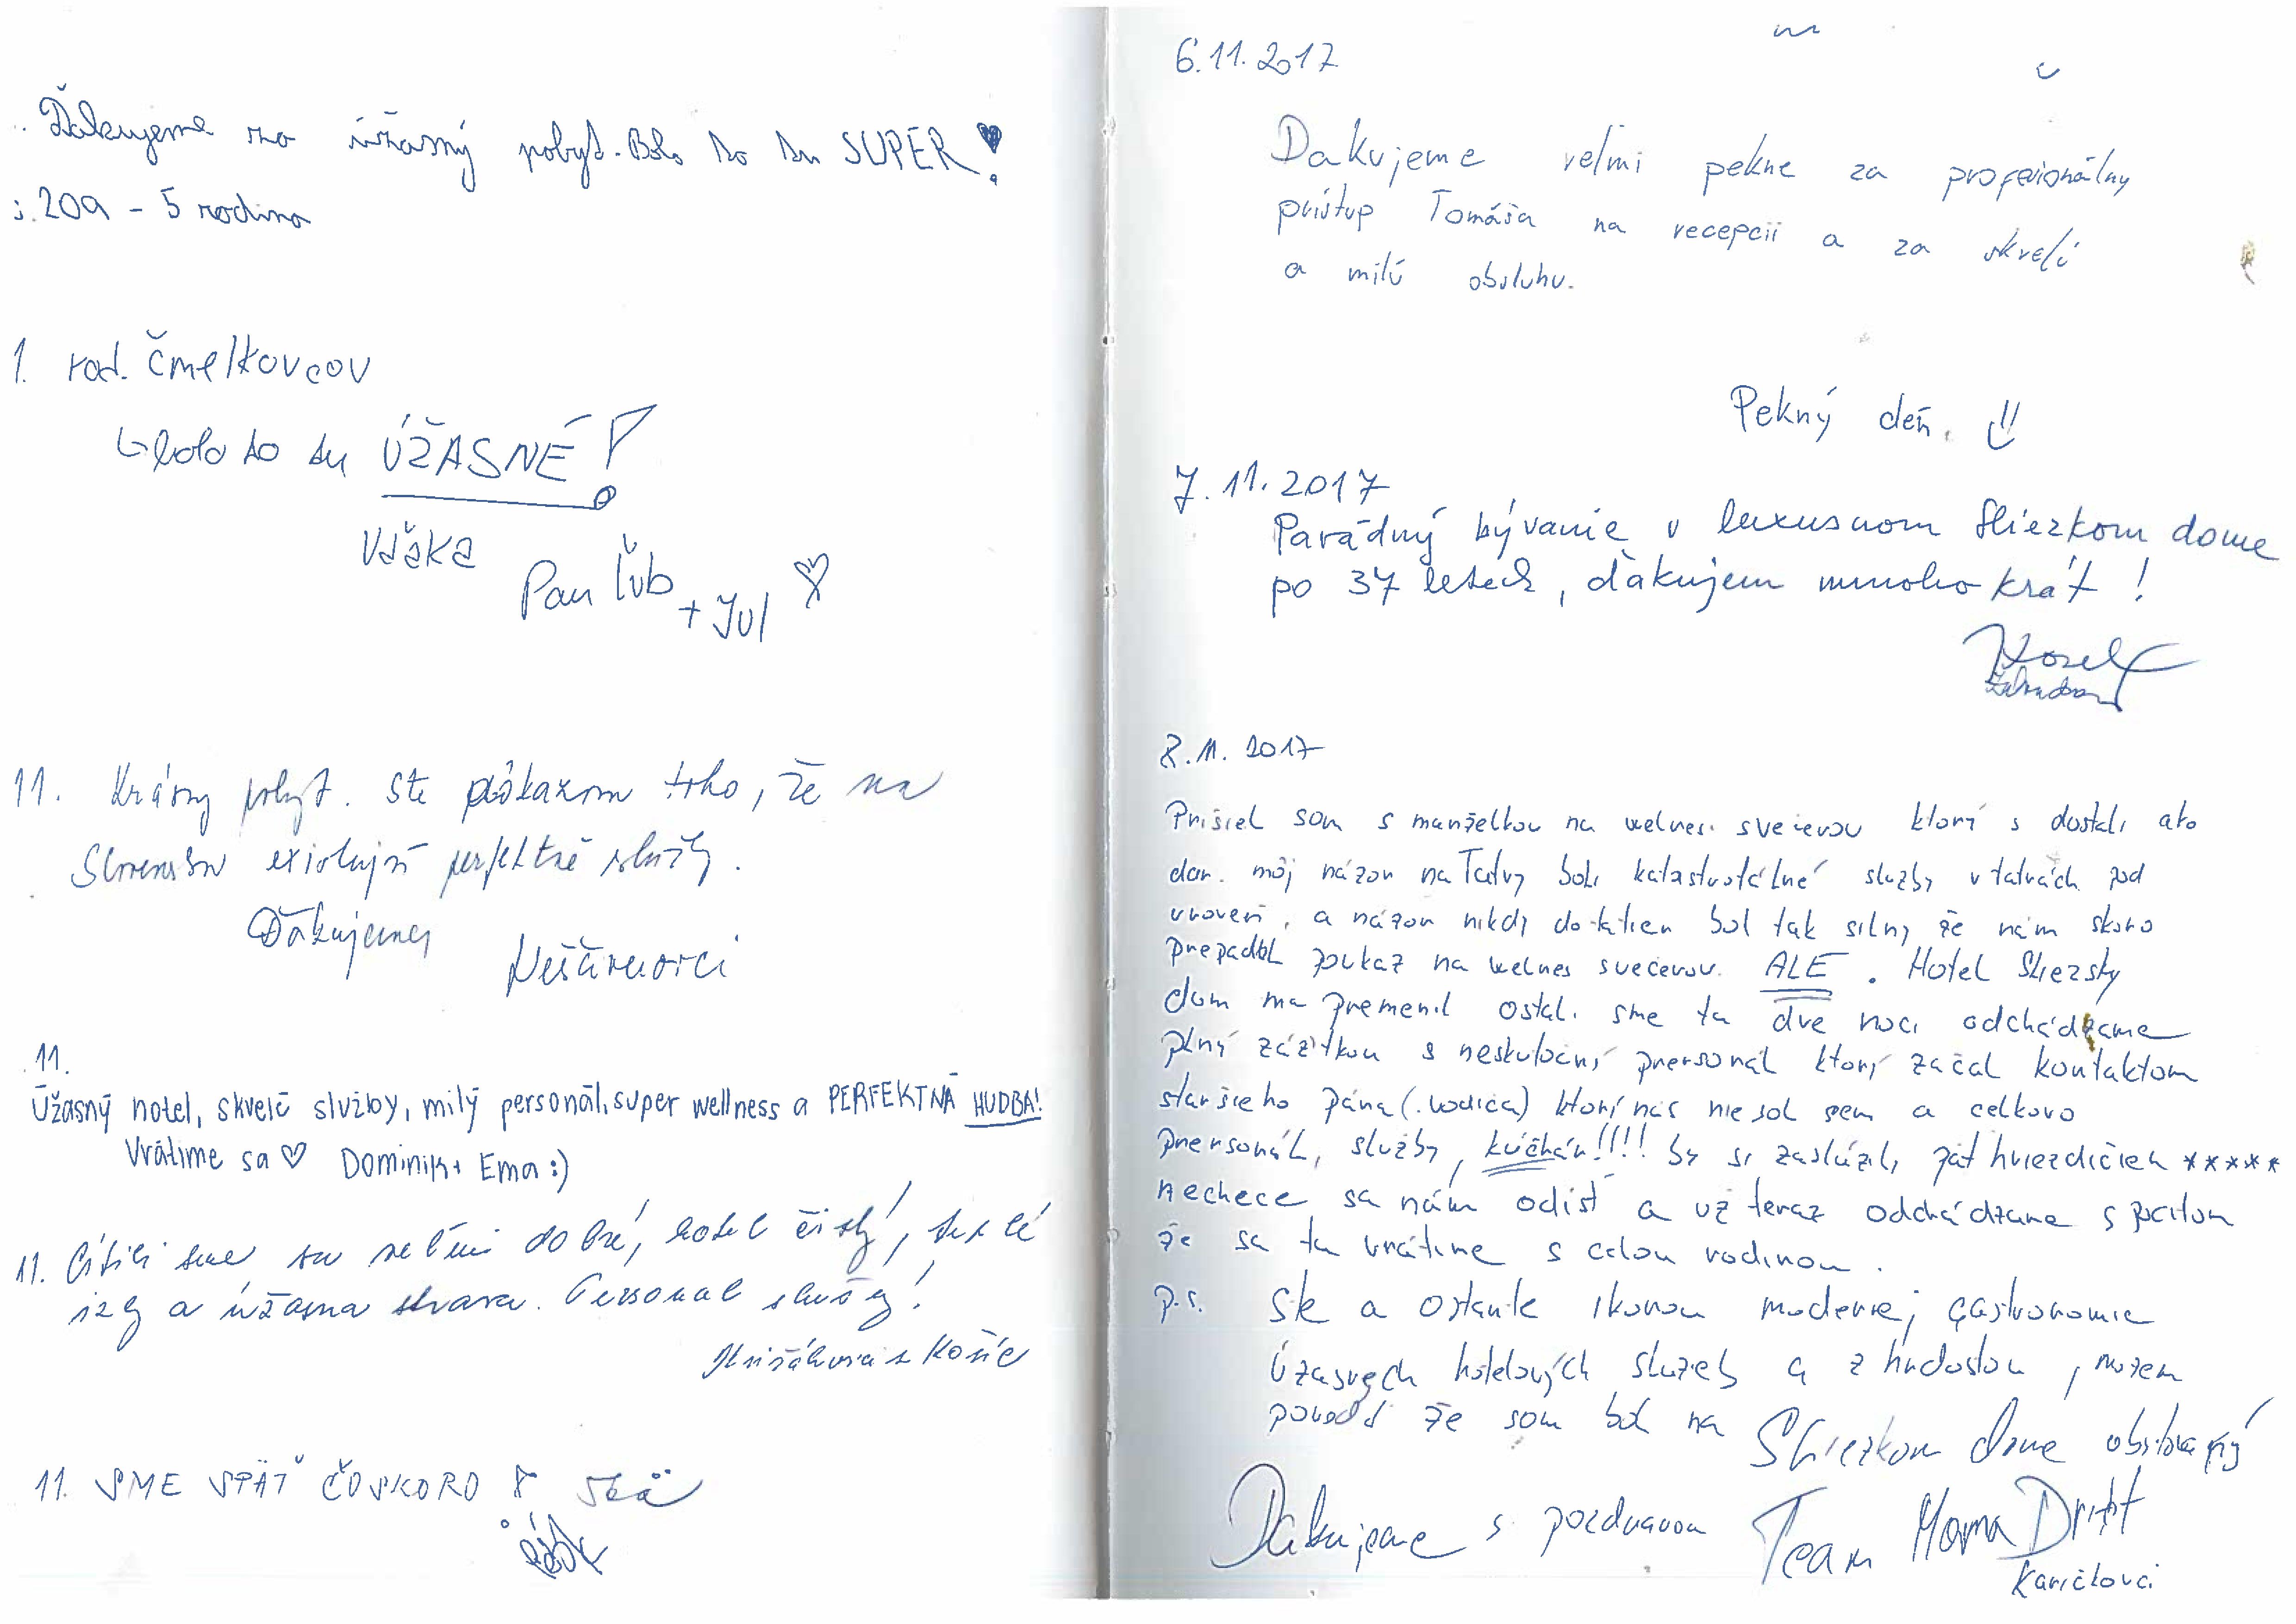 Ďakujeme za úžasný pobyt. Bolo to tu SUPER!
i. 209 - 5 rodina
1. rod. Čmelkovcov
↳ bolo to tu ÚŽASNÉ!
Vďaka
Pan Ľub + Jul
11. Krásny pobyt. Ste dôkazom toho, že na
Slovensku existujú perfektné služby.
Ďakujeme
11.
Úžasný hotel, skvelé služby, milý personál, super wellness a PERFEKTNÁ HUDBA!
Vrátime sa ♡ Dominik + Ema :)
11. Cítili sme sa veľmi dobre, hotel čistý, teplé
izby a úžasna strava. Personal slušný!
Košíc
11. SME SPÄŤ ČOSKORO
6.11.2017
Dakujeme veľmi pekne za profesionálny
prístup Tomáša na recepcii a za skvelú
a milú obsluhu.
Pekný deň.
7.11.2017
Parádný bývanie v luxusnom Sliezkom dome
po 37 letech, ďakujem mnoho krát!
8.11.2017
Prišiel som s manželkou na welnes svečerou ktorý s dostali ako
dar. môj názor na Tatry boli katastrofálné služby v tatrách pod
uroveň, a názor nikdy dotatier bol tak silny že nám skoro
prepadol poukaz na welnes svečerou. ALE. Hotel Sliezsky
dom ma premenil ostali sme tu dve noci odchádzame
plný zážitkou s neskutočný prersonál ktorý začal kontaktom
staršieho pána (vodiča) ktorý nás niesol sem a celkovo
prersonál, služby, kúcháň!!!! by si zaslúžili päť hviezdičiek *****
nechece sa nám odísť a už teraz odchádzame s pocitom
že sa tu vrátime s celou rodinou.
p.s. Ste a ostante ikonou modernej gastronomie
Úžasnych hotelových služieb a z hrdostou, možem
povedať že som bol na Sliezkom dome obsluhovaný
Ďakujeme s pozdravom Team Moma Drift
Karičkovci